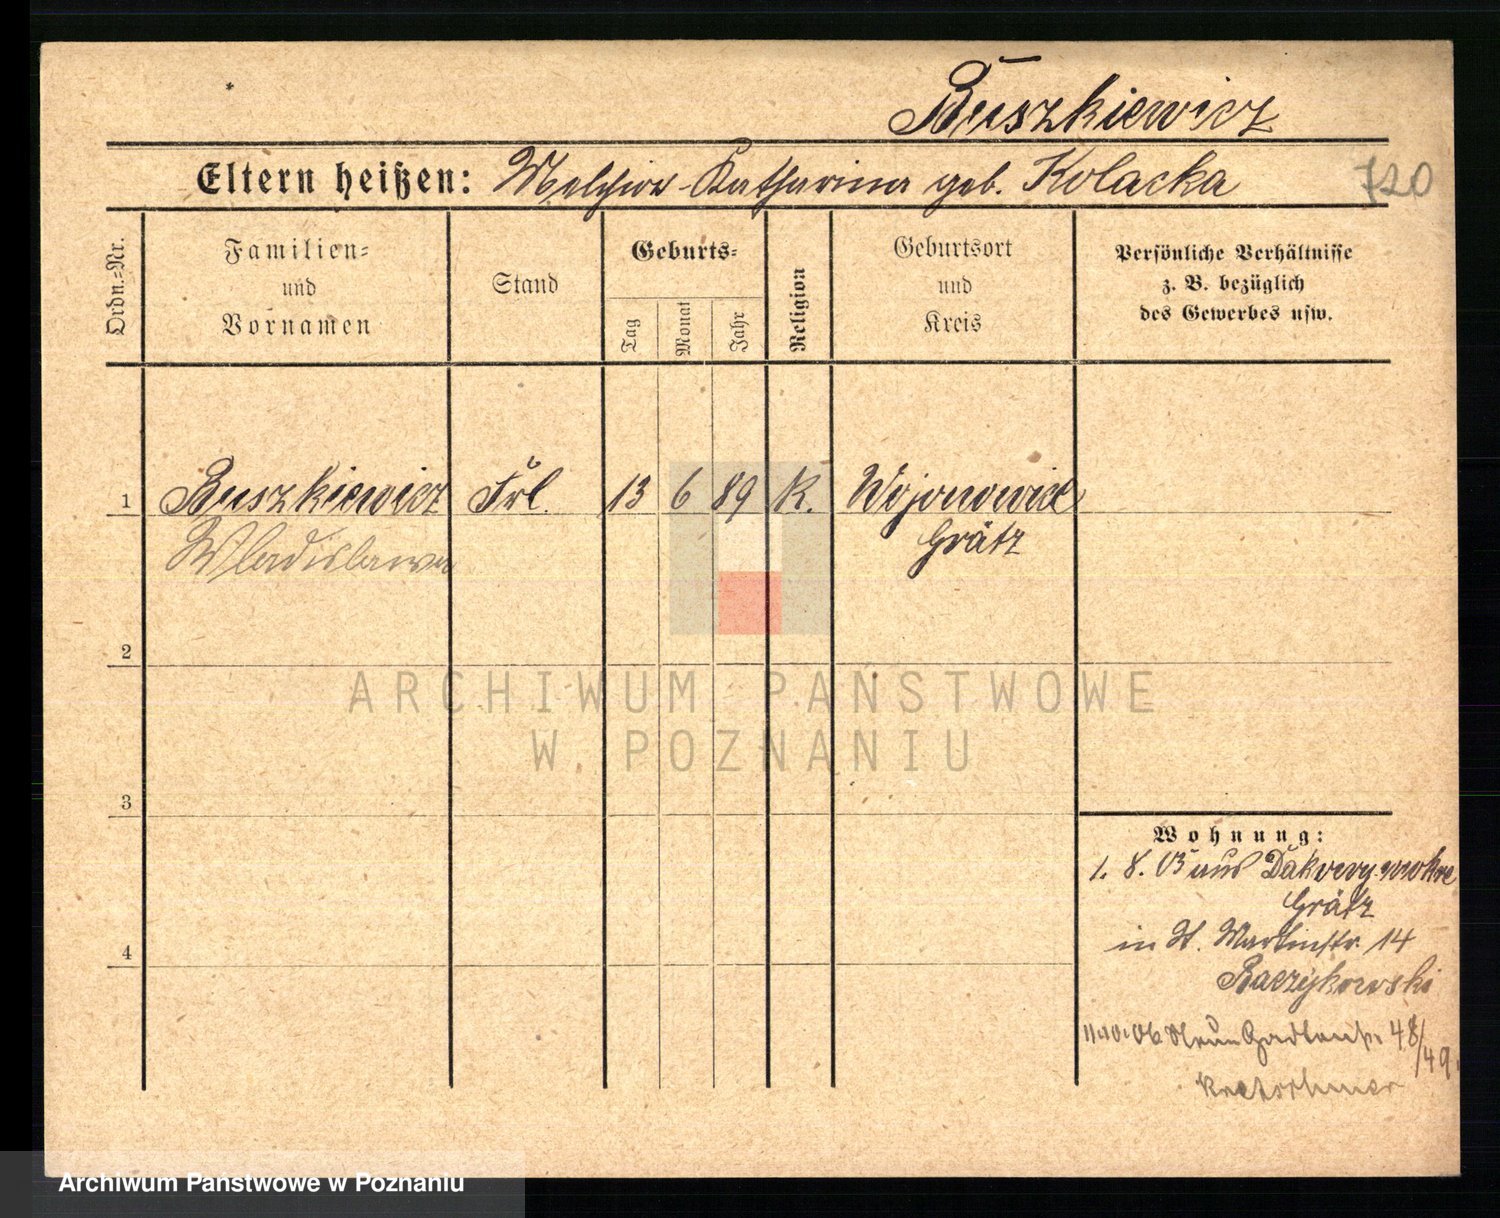 Buszkiewicz
Eltern heißen: Melchior - Katharina geb. Kolacka 720
Ordn.=Nr.
Familien=
und
Vornamen
Stand
Geburts=
Tag
Monat
Jahr
Religion
Geburtsort
und
Kreis
Persönliche Verhältnisse
z. B. bezüglich
des Gewerbes usw.
1 Buszkiewicz Frl. 13 6 89 K.
Wladislawa
Grätz
2
3
4
Wohnung:
1. 8. 03 aus
Grätz
in St. Martinstr. 14
Raczykowski
Gartenstr. 48/49.
Kretschmer
ARCHIWUM PAŃSTWOWE
W POZNANIU
Archiwum Państwowe w Poznaniu